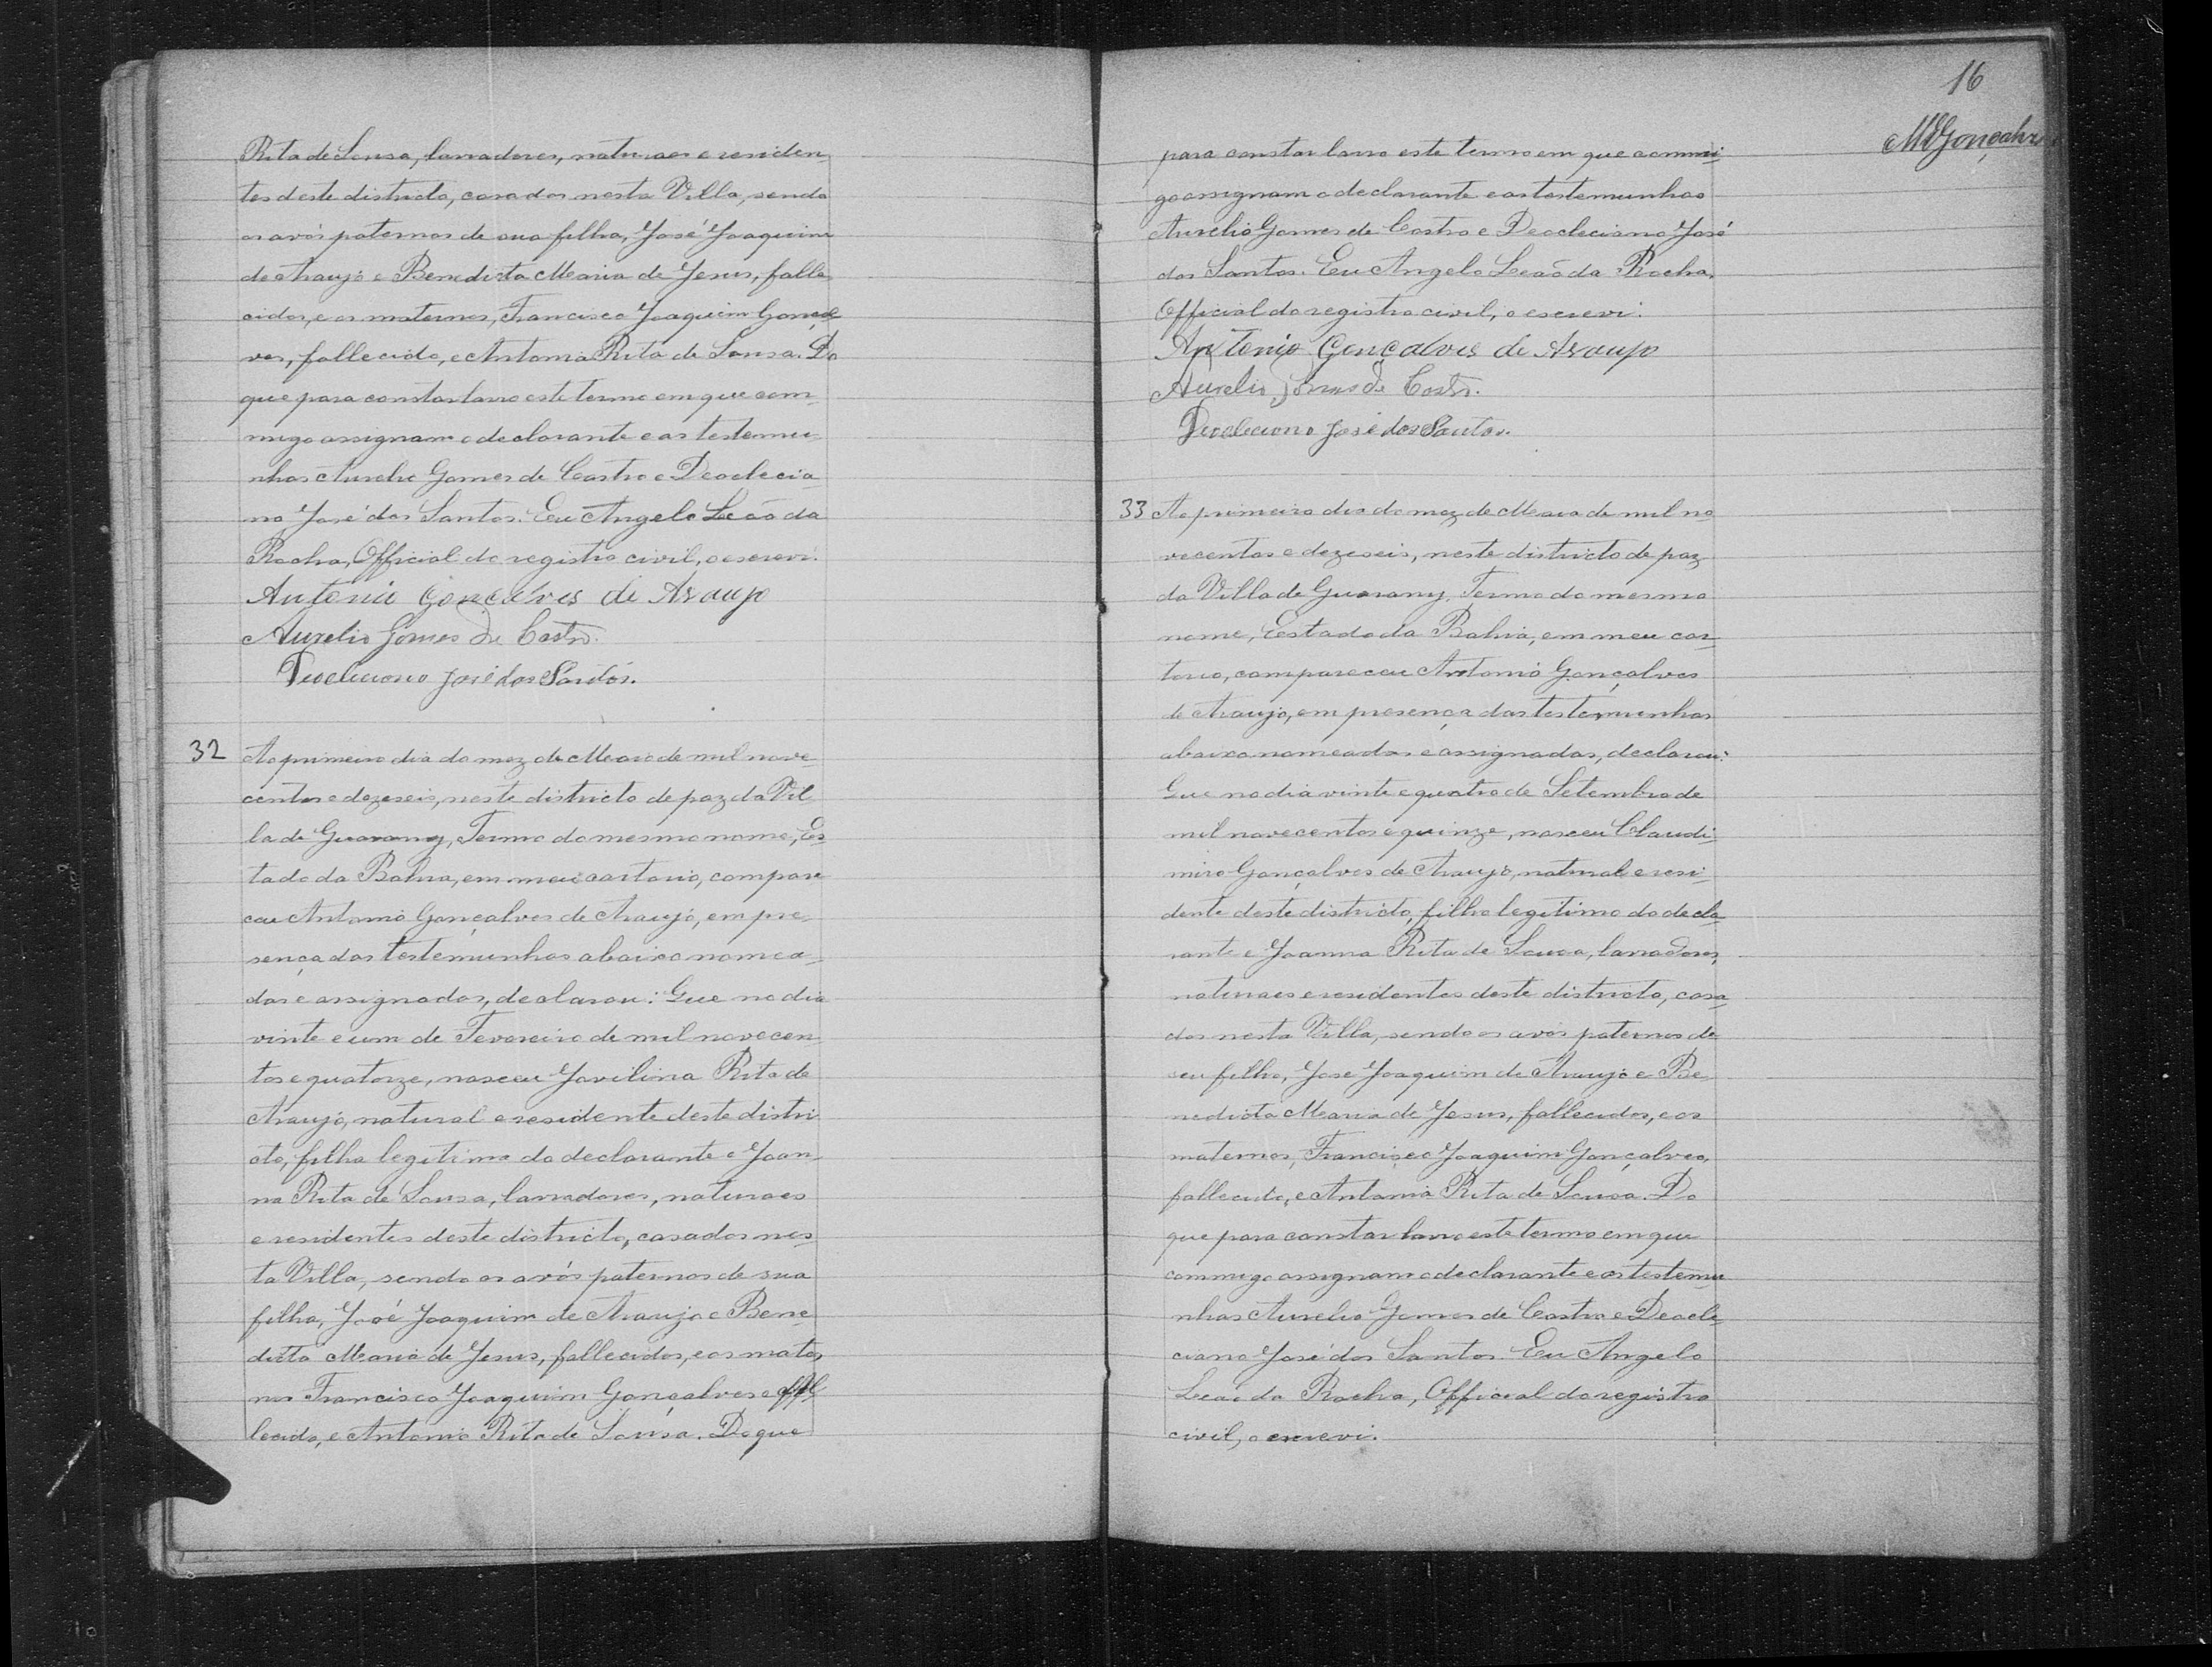 Rita de Sousa, lavradores, naturaes e residen
tes deste districto, casados nesta Villa, sendo
os avós paternos de sua filha, José Joaquim
de Araujo e Benedicta Maria de Jesus, falle
cidos, e os maternos, Francisco Joaquim Gonçal
ves, fallecido, e Antonia Rita de Sousa. Do
que para constar lavro este termo em que com-
migo assignam o declarante e as testemu-
nhas Aurelio Gomes de Castro e Deoclecia-
no José dos Santos. Eu Angelo Leão da
Rocha, Official do registro civil, o escrevi.
Antonio Gonçalves de Araujo
Aurelio Gomes de Castro.
Deocleciano José dos Santos.
32 Ao primeiro dia do mez de Maio de mil nove-
centos e dezeseis, neste districto de paz da Vil
la de Guarany, Termo do mesmo nome, Es
tado da Bahia, em meu cartorio, compare
ceu Antonio Gonçalves de Araujo, em pre-
sença das testemunhas abaixo nomea-
das e assignadas, declarou: Que no dia
vinte e um de Fevereiro de mil novecen
tos e quatorze, nasceu Jovilina Rita de
Araujo, natural e residente deste distri
cto, filha legitima do declarante e Joan-
na Rita de Sousa, lavradores, naturaes
e residentes deste districto, casados nes-
ta Villa, sendo os avós paternos de sua
filha, José Joaquim de Araujo e Bene
dicta Maria de Jesus, fallecidos, e os mater
nos Francisco Joaquim Gonçalves
lecido, e Antonia Rita de Sousa. Do que
16
MGonçalves
para constar lavro este termo em que commi-
go assignam o declarante e as testemunhas
Aurelio Gomes de Castro e Deocleciano José
dos Santos. Eu Angelo Leão da Rocha,
Official do registro civil, o escrevi.
Antonio Gonçalves de Araujo
Aurelio Gomes de Castro.
Deocleciano José dos Santos.
33 Ao primeiro dia do mez de Maio de mil no
vecentos e dezeseis, neste districto de paz
da Villa de Guarany, Termo do mesmo
nome, Estado da Bahia, em meu car-
torio, compareceu Antonio Gonçalves
de Araujo, em presença das testemunhas
abaixo nomeadas e assignadas, declarou:
Que no dia vinte e quatro de Setembro de
mil novecentos e quinze, nasceu Claudi-
miro Gonçalves de Araujo, natural e resi-
dente deste districto, filho legitimo do decla-
rante e Joanna Rita de Sousa, lavradores,
naturaes e residentes deste districto, casa-
dos nesta Villa, sendo os avós paternos de
seu filho, José Joaquim de Araujo e Be-
nedicta Maria de Jesus, fallecidos, e os
maternos, Francisco Joaquim Gonçalves,
fallecido, e Antonia Rita de Sousa. Do
que para constar lavro este termo em que
commigo assignam o declarante e as testemu
nhas Aurelio Gomes de Castro e Deocle-
ciano José dos Santos. Eu Angelo
Leão da Rocha, Official do registro
civil, o escrevi.